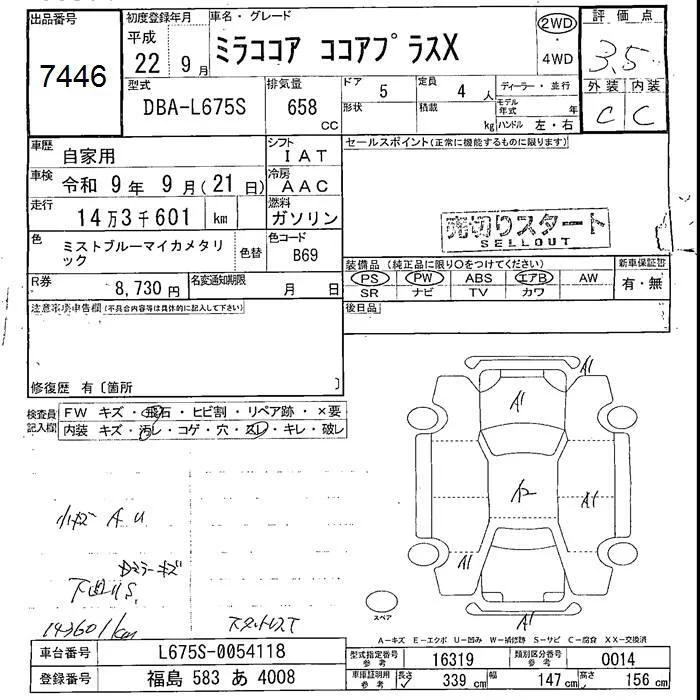 出品番号
7446
初度登録年月
平成
22 9月
車名・グレード
ミラココア ココアプラスX
2WD
・
4WD
評価点
3.5
外装 内装
C C
型式
DBA-L675S
排気量
658
CC
ドア
5
定員
4 人
形状
積載
kg
ディーラー・並行
モデル年式 年
ハンドル 左・右
車歴
自家用
シフト
IAT
車検
令和 9年 9月(21日)
冷房
AAC
走行
14万3千601 km
燃料
ガソリン
色
ミストブルーマイカメタリ
ック
色替
色コード
B69
R券
8,730円
名変通知期限
月 日
セールスポイント(正常に機能するものに限ります)
売切りスタート
SELLOUT
装備品(純正品に限り○をつけてください)
PS PW ABS エアB AW
SR ナビ TV カワ
新車保証書
有・無
後日品
注意事項申告欄(不具合内容等は具体的に記入して下さい)
修復歴 有〔箇所 〕
検査員
記入欄
FW キズ・飛石・ヒビ割・リペア跡・×要
内装 キズ・汚レ・コゲ・穴・スレ・キレ・破レ
小キズ A U
下回りS
143601km
A1
A1
A1
A1
A1
スペア
A-キズ E-エクボ U-凹み W-補修跡 S-サビ C-腐食 XX-交換済
車台番号
L675S-0054118
登録番号
福島 583 あ 4008
型式指定番号
参考
16319
類別区分番号
参考
0014
車庫証明用
参考
長さ 339 cm
幅 147 cm
高さ 156 cm